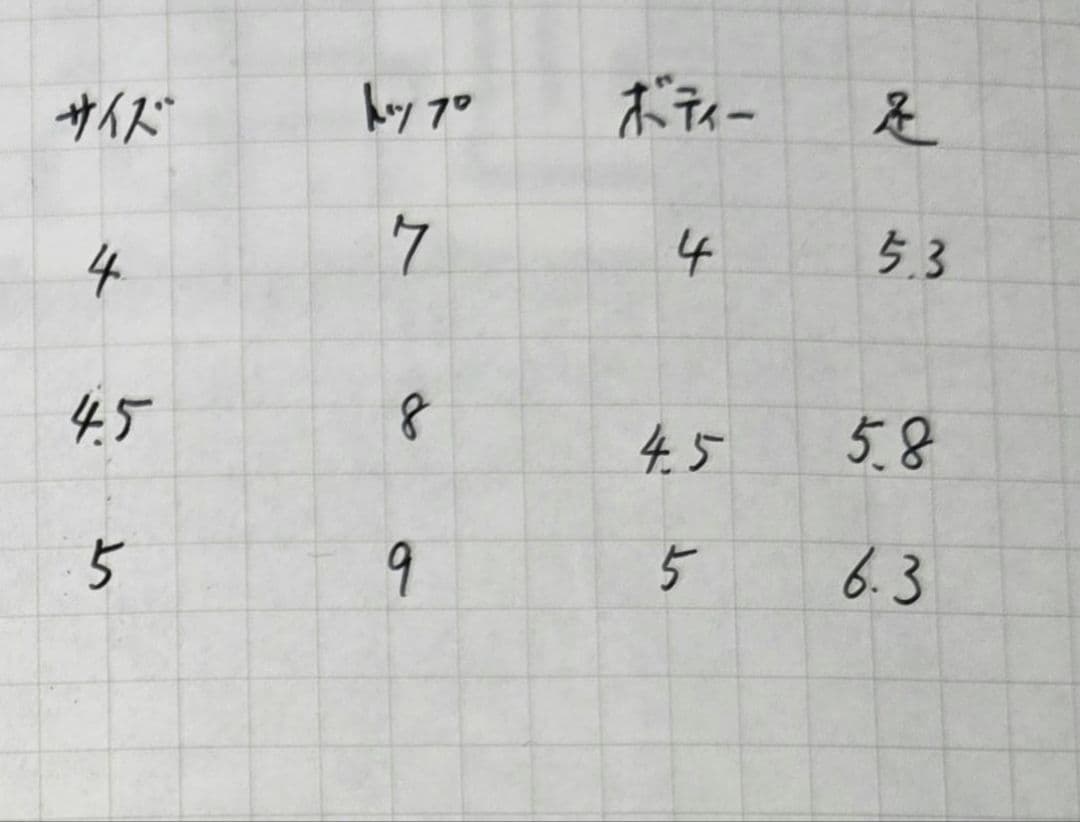 サイズ トップ ボディー 足
4 7 4 5.3
4.5 8 4.5 5.8
5 9 5 6.3